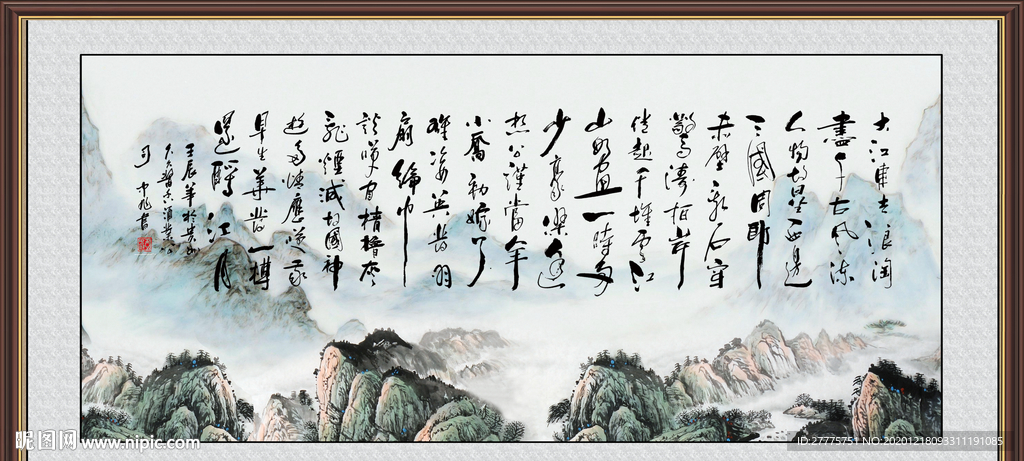 大江東去浪淘
盡千古風流
人物故壘西邊
三國周郎
赤壁亂石穿
驚濤拍岸
捲起千堆雪江
山如畫一時多
少豪傑遙
想公瑾當年
小喬初嫁了
雄姿英發羽
扇綸巾
談笑間檣櫓灰
飛煙滅故國神
遊多情應笑我
早生華髮一樽
還酹江月
昵图网 www.nipic.com
ID:27775751 NO:20201218093311191085